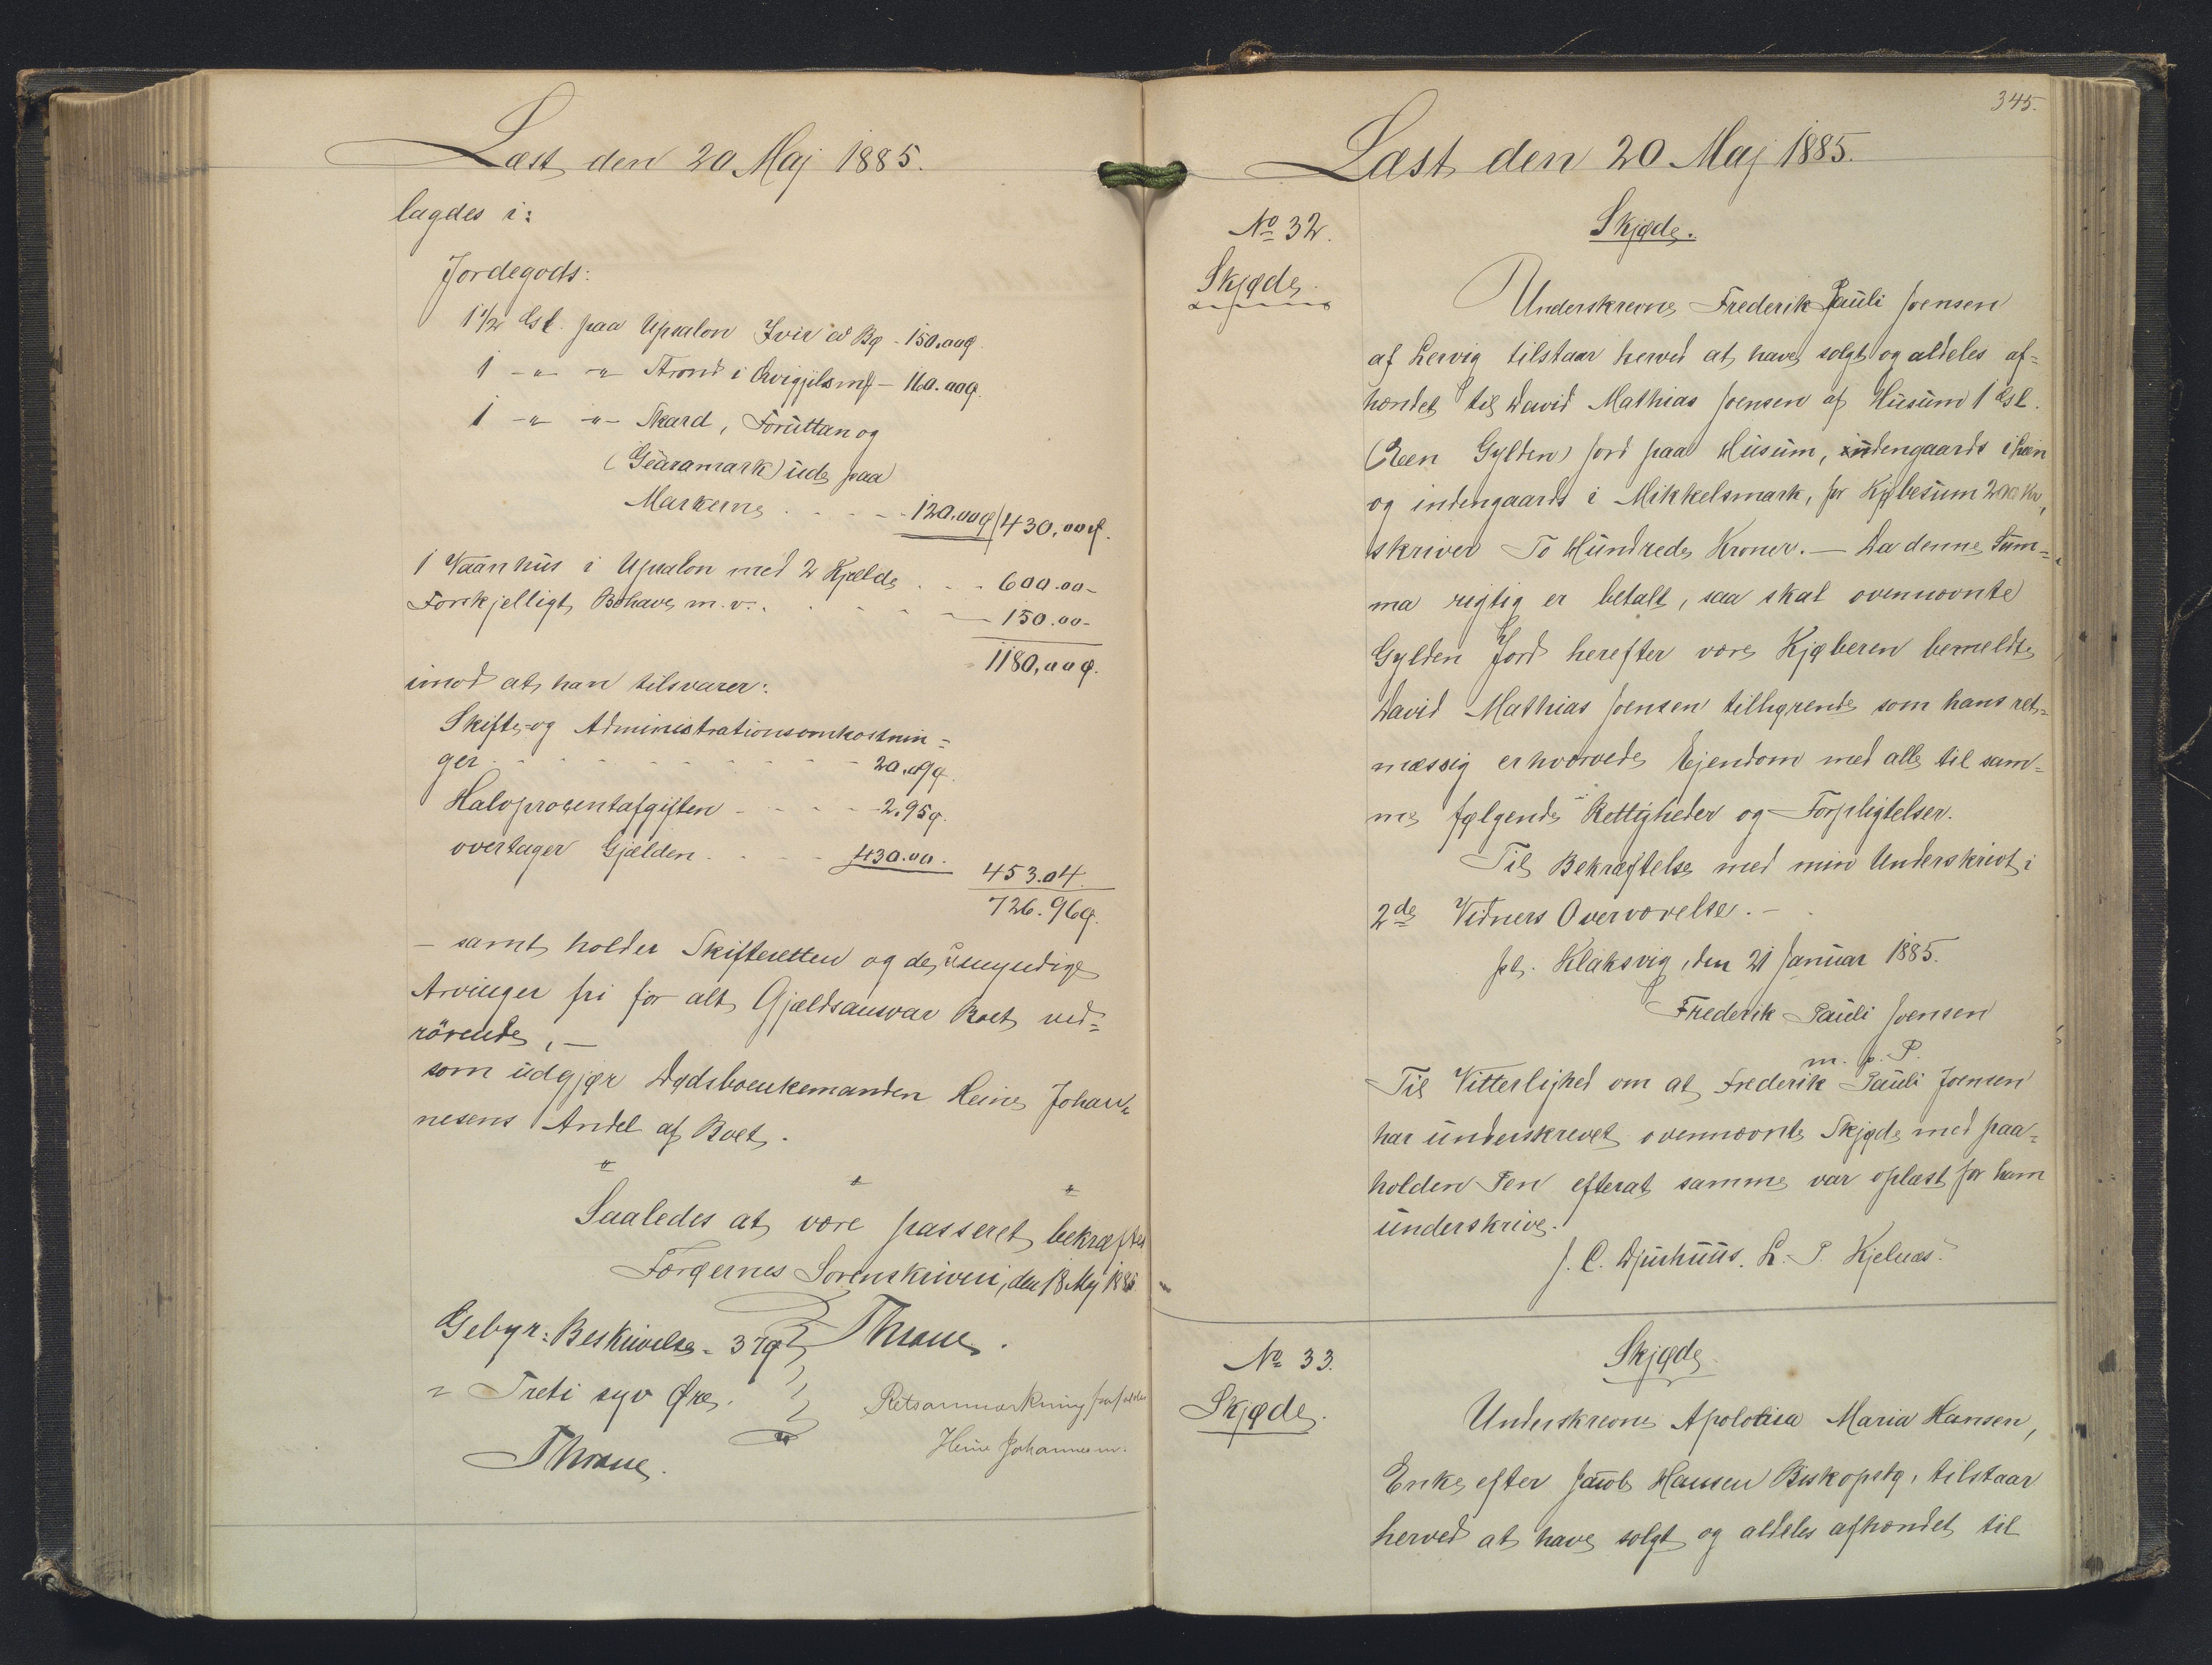 Læst den 20 Maj 1885.
lagdes i:
Jordegods:
1½ Gl. paa Upsalon Ivir á Bø - 150.00ø.
1 -"- -"- Strond i Qvigjilsmk - 160.00ø.
1 -"- -"- Skard, Foruttan og
(Geàramark) ude paa
Markerne . . . . 120.00ø / 430.00ø.
1 Vaanhus i Upsalon med 2 Kjelde . . . 600.00-
Forskjelligt Bohave m. v. . . . . . 150.00-
1180,00ø.
imod at han tilsvarer:
Skifte- og Administrationsomkostnin-
ger . . . . . . . . 20.09ø.
Halvprocentafgiften - . . . 2.95ø.
overtager Gjælden . . . 430.00.
453.04.
726.96ø.
- samt holder Skifteretten og de umyndige
Arvinger fri for alt Gjældsansvar Boet ved-
rörende, -
som udgjør Dødsboenkemanden Heine Johan-
nesens Andel af Boet.
" " "
Saaledes at være passeret bekræftes
Færøernes Sorenskriveri, den 18 Maj 1885.
Gebyr: Beskrivelse - 37ø Thrane.
= Treti syv Øre.
Retsanmærkning frafaldes
Heine Johannesen.
Thrane.
345.
Læst den 20 Maj 1885.
No 32.
Skjøde.
Skjøde.
Underskrevne Frederik Pauli Joensen
af Lervig tilstaar herved at have solgt og aldeles af-
hændet til David Mathias Joensen af Husum 1 Gl.
(Een Gylden) Jord paa Husum, indengaards i
og indengaards i Mikkelsmark, for Kjøbesum 200 Kr,
skriver To Hundrede Kroner. - Da denne Sum-
ma rigtig er betalt, saa skal ovennævnte
Gylden Jord herefter være Kjøberen bemeldte
David Mathias Joensen tilhørende som hans ret-
mæssig erhvervede Ejendom med alle til sam-
me følgende Rettigheder og Forpligtelser.
Til Bekræftelse med min Underskrivt i
2de Vidners Overværelse. -
pt. Klaksvig, den 21 Januar 1885.
Frederik Pauli Joensen
m. p. P.
Til Vitterlighed om at Frederik Pauli Joensen
har underskrevet ovennævnte Skjøde med paa-
holden Pen efterat samme var oplæst for ham
underskrive.
J. C. Djurhuus. L. P. Kjelnæs.
No 33.
Skjøde.
Skjøde.
Underskrevne Apolonia Maria Hansen,
Enke efter Jacob Hansen Biskopstø, tilstaar
herved at have solgt og aldeles afhændet til